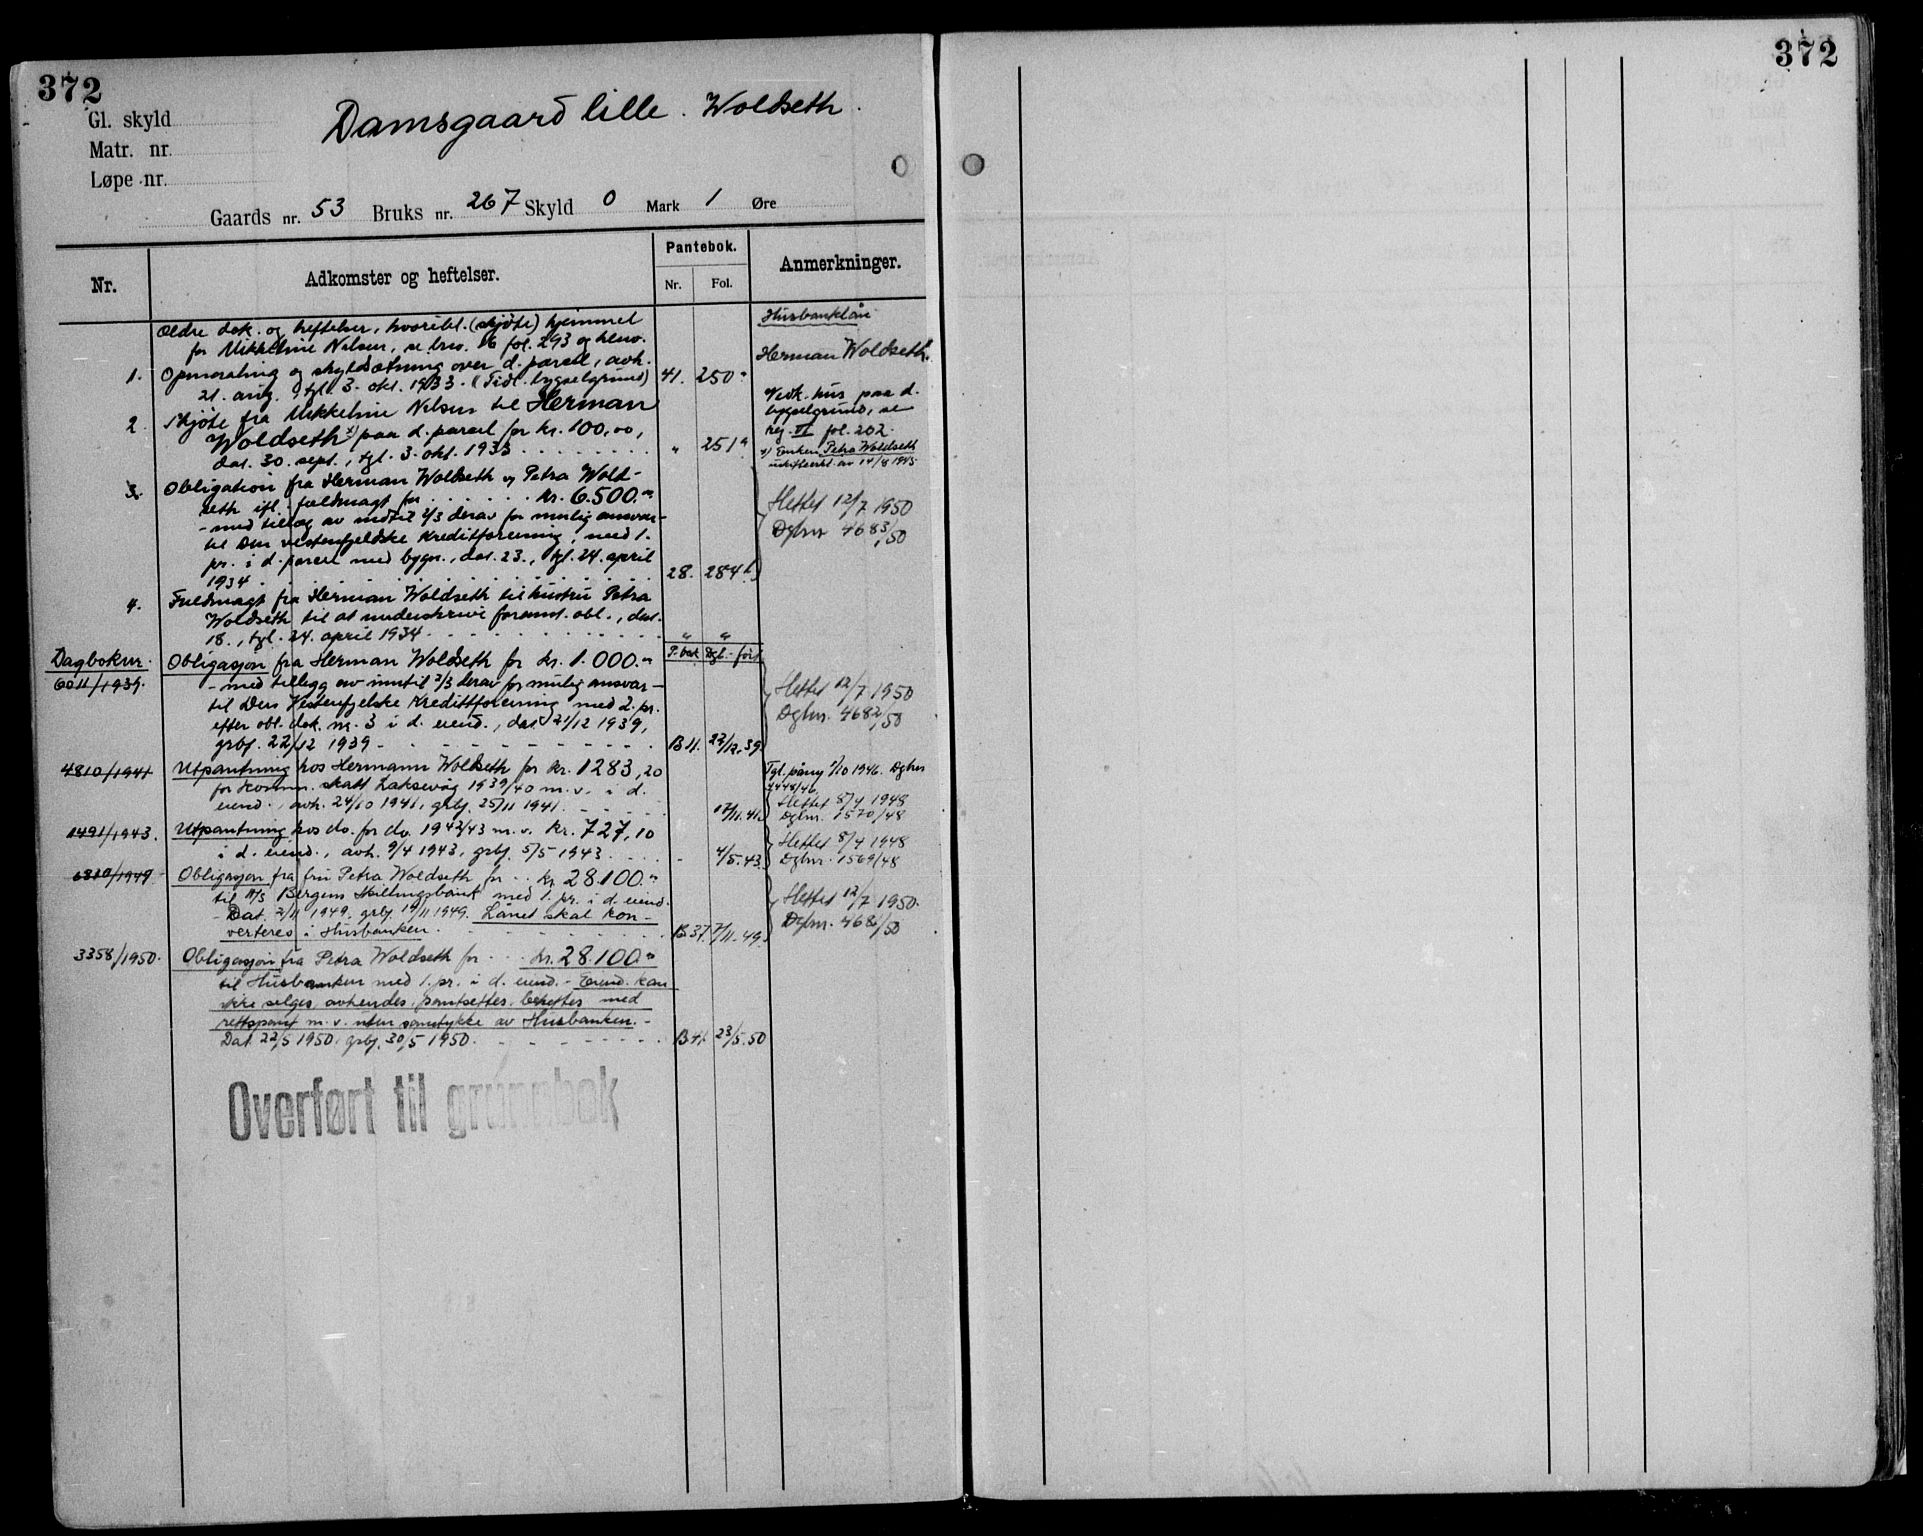 372
372
Gl. skyld
Matr. nr.
Løpe nr.
Damsgaard lille. Woldseth.
Gaards nr. 53 Bruks nr. 267 Skyld 0 Mark 1 Øre
Nr.
Adkomster og heftelser.
Pantebok.
Nr. Fol.
Anmerkninger.
Ældre dok. og heftelser, hvoribl. (skjøte) hjemmel
for Mikkeline Nilsen, se 16 fol. 293 og henv.
1. Opmaaling og skyldsætning over d. parcel, avh.
21. aug., tgl. 3. okt. 1933. (Tidl. bygselgrund) 41. 250a
2. Skjøte fra Mikkeline Nilsen til Herman
Woldseth x) paa d. parcel for kr. 100,00,
dat. 30. sept., tgl. 3. okt. 1933 " 251a
3. Obligation fra Herman Woldseth og Petra Wold-
seth ifl. fuldmagt for kr. 6.500.-
- med tillæg av indtil 2/3 derav for mulig ansvar -
til Den vestenfjeldske Kreditforening, med 1.
pr. i d. parcel med bygn., dat. 23., tgl. 24. april
1934 28. 284b
4. Fuldmagt fra Herman Woldseth til hustru Petra
Woldseth til at underskrive foranst. obl., dat.
18., tgl. 24. april 1934 " "
Dagboknr. P.bok Dgl. ført
6011/1939. Obligasjon fra Herman Woldseth for kr. 1.000.-
- med tillegg av inntil 2/3 derav for mulig ansvar -
til Den Vestenfjelske Kredittforening med 2. pr.
efter obl. dok. nr. 3 i d. eiend., dat. 21/12 1939,
grbf. 22/12 1939 - B 11. 22/12.39.
4810/1941 Utpantning hos Hermann Woldseth for kr. 1283,20
for komm. skatt Laksevåg 1939/40 m.v. i d.
eiend., avh. 24/10 1941, grbf. 25/11 1941. 17/11.41.
1491/1943. Utpantning hos do. for do. 1942/43 m.v. kr. 727,10
i d. eiend., avh. 9/4 1943, grbf. 5/5 1943. - 4/5.43.
6810/1949 Obligasjon fra fru Petra Woldseth for kr. 28.100.-
til A/S Bergens Skillingsbank med 1. pr. i d. eiend.
- Dat. 2/11 1949. grbf. 14/11 1949. Lånet skal kon-
verteres i Husbanken. B 37. 7/11.49.
3358/1950. Obligasjon fra Petra Woldseth for kr. 28.100.-
til Husbanken med 1. pr. i d. eiend. - Eiend. kan
ikke selges, avhendes, pantsettes, beheftes med
rettspant m.v. uten samtykke av Husbanken. -
Dat. 22/5 1950, grbf. 30/5 1950. B 41. 23/5.50
Husbanklån
Herman Woldseth.
Vedk. hus paa d.
bygselgrund, se
reg. VI fol. 202.
x) Enken Petra Woldseth
uskifteerkl. av 14/8 1945.
Slettet 12/7 1950
Dgbnr 4683/50
Slettet 12/7 1950
Dgbnr. 4682/50
Tgl. påny 1/10 1946. Dgbnr
4448/46.
Slettet 8/4 1948
Dgbnr. 1570/48
Slettet 8/4 1948
Dgbnr. 1569/48
Slettet 12/7 1950.
Dgbnr. 4681/50
Overført til grunnbok